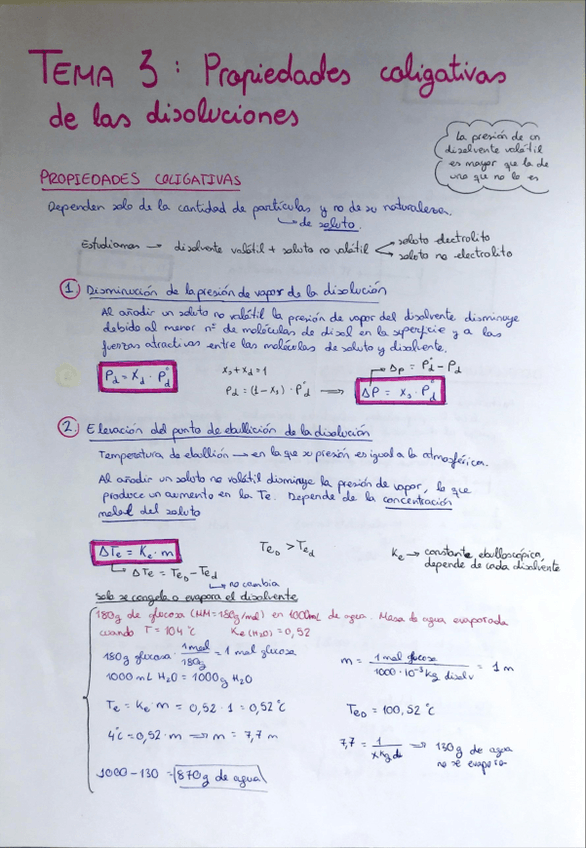 TEMA 3: Propiedades coligativas
de las disoluciones
La presión de un
disolvente volátil
es mayor que la de
uno que no lo es
PROPIEDADES COLIGATIVAS
Dependen solo de la cantidad de partículas y no de su naturaleza.
↳ de soluto.
Estudiamos → disolvente volátil + soluto no volátil
soluto electrolito
soluto no electrolito
1) Disminución de la presión de vapor de la disolución
Al añadir un soluto no volátil la presión de vapor del disolvente disminuye
debido al menor nº de moléculas de disol en la superficie y a las
fuerzas atractivas entre las moléculas de soluto y disolvente.
Pd = Xd · P°d
xs + xd = 1
Pd = (1 - xs) · P°d ⟹
Δp = P°d - Pd
ΔP = xs · P°d
2. Elevación del punto de ebullición de la disolución
Temperatura de ebullión → en la que su presión es igual a la atmosférica.
Al añadir un soluto no volátil disminuye la presión de vapor, lo que
produce un aumento en la Te. Depende de la concentración
molal del soluto
ΔTe = Ke · m
TeD > Ted
Ke → constante ebulloscópica,
depende de cada disolvente
↳ ΔTe = TeD - Ted
↳ no cambia
solo se congela o evapora el disolvente
180g de glucosa (MM=180g/mol) en 1000mL de agua. Masa de agua evaporada
cuando T = 104°C Ke (H2O) = 0,52
180g glucosa · 1mol/180g = 1 mol glucosa
m = 1 mol glucosa / 1000·10⁻³ Kg disolv = 1 m
1000 mL H2O = 1000g H2O
Te = Ke · m = 0,52 · 1 = 0,52°C
TeD = 100,52°C
4°C = 0,52 · m ⟹ m = 7,7 m
7,7 = 1 / x Kg de ⟹ 130g de agua
no se evapora
1000 - 130 = 870g de agua